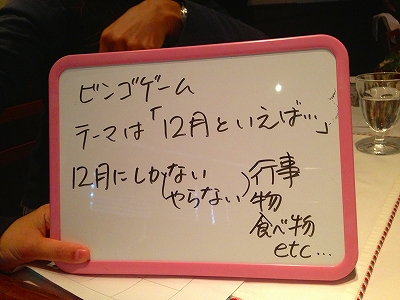 ビンゴゲーム
テーマは「12月といえば…」
12月にしか(ない やらない)行事
物
食べ物
etc…